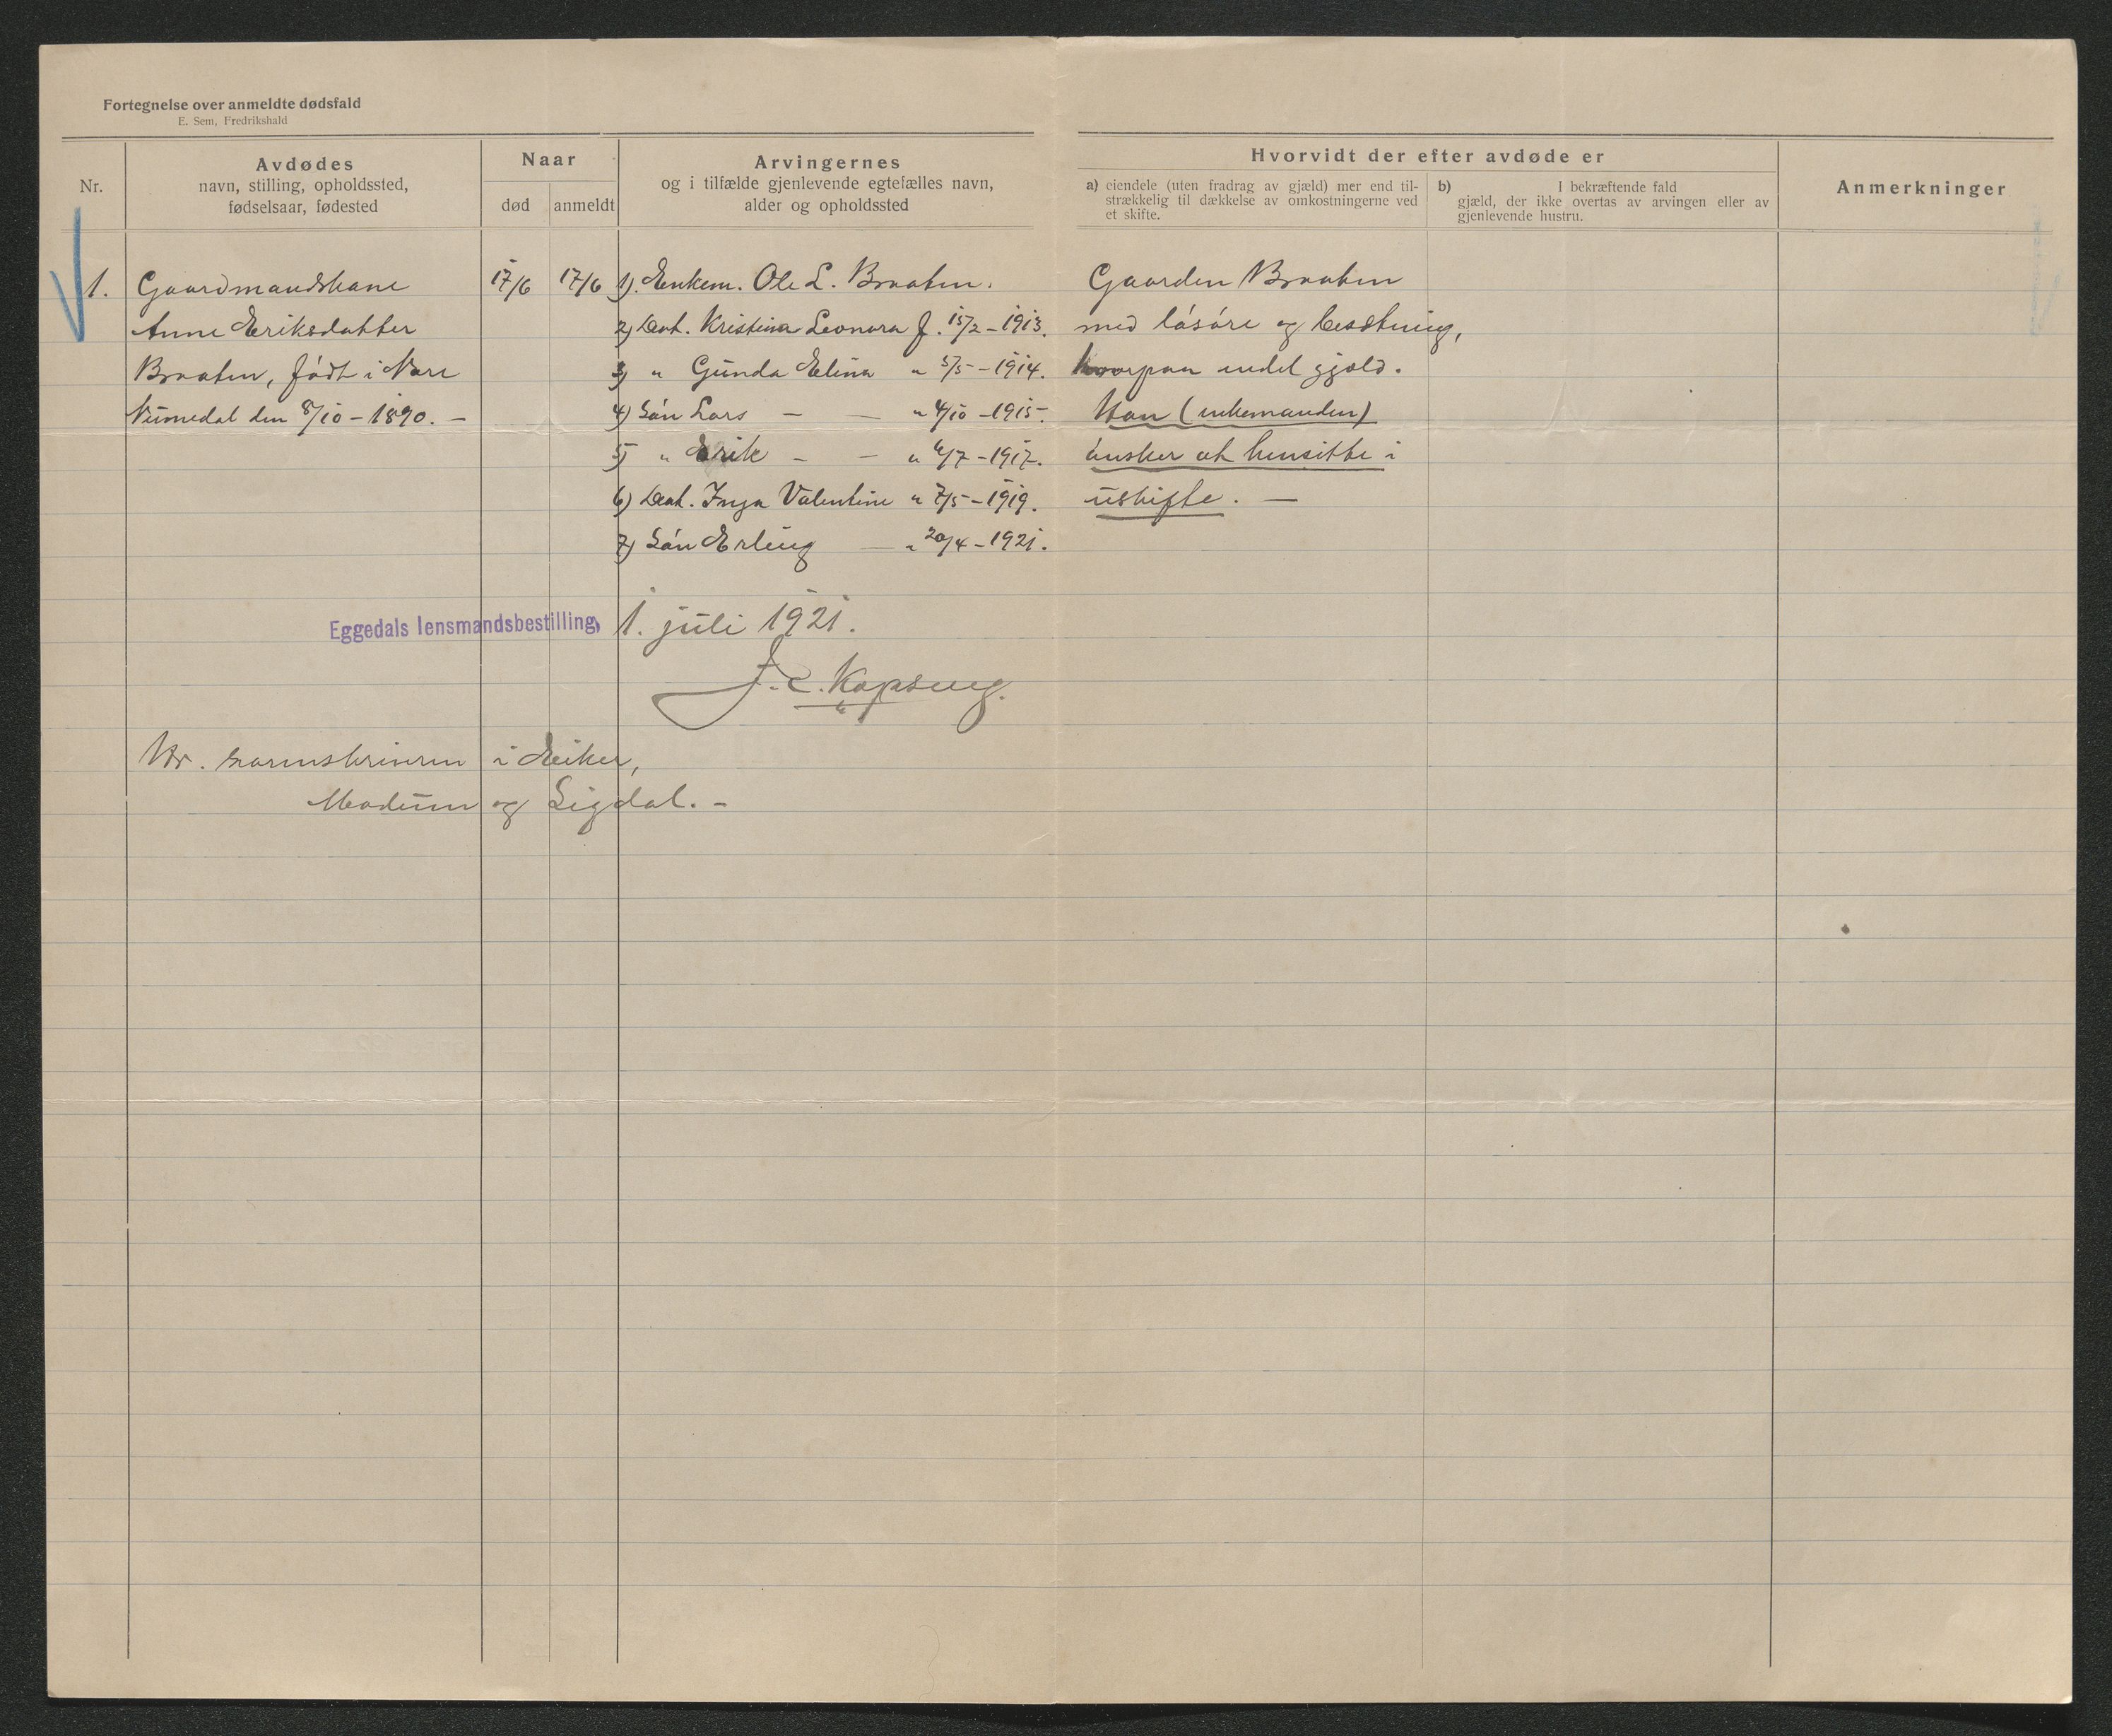 Fortegnelse over anmeldte dødsfald
E. Sem, Fredrikshald
Nr.
Avdødes
navn, stilling, opholdssted,
fødselsaar, fødested
Naar
død
anmeldt
Arvingernes
og i tilfælde gjenlevende egtefælles navn,
alder og opholdssted
Hvorvidt der efter avdøde er
a) eiendele (uten fradrag av gjæld) mer end til-
strækkelig til dækkelse av omkostningerne ved
et skifte.
b) I bekræftende fald
gjæld, der ikke overtas av arvingen eller av
gjenlevende hustru.
Anmerkninger
1. Gaardmandskone
Anne Eriksdatter
Braaten, født i Nore
Numedal den 8/10-1890. -
17/6
17/6
1). Enkem. Ole L. Braaten.
2) Dat. Kristina Leonora f. 15/2-1913.
3) " Gunda Elina " 5/5-1914.
4) Søn Lars - — " 4/10-1915.
5) " Erik - — " 6/7-1917.
6) Dat. Inga Valentine " 7/5-1919.
7) Søn Erling — " 20/4-1921.
Gaarden Braaten
med løsøre og besætning,
hvorpaa endel gjæld.
Han (enkemanden)
ønsker at hensitte i
uskifte. —
Eggedals lensmandsbestilling, 1. juli 1921.
Hr. sorenskriveren i Eiker,
Modum og Sigdal. -